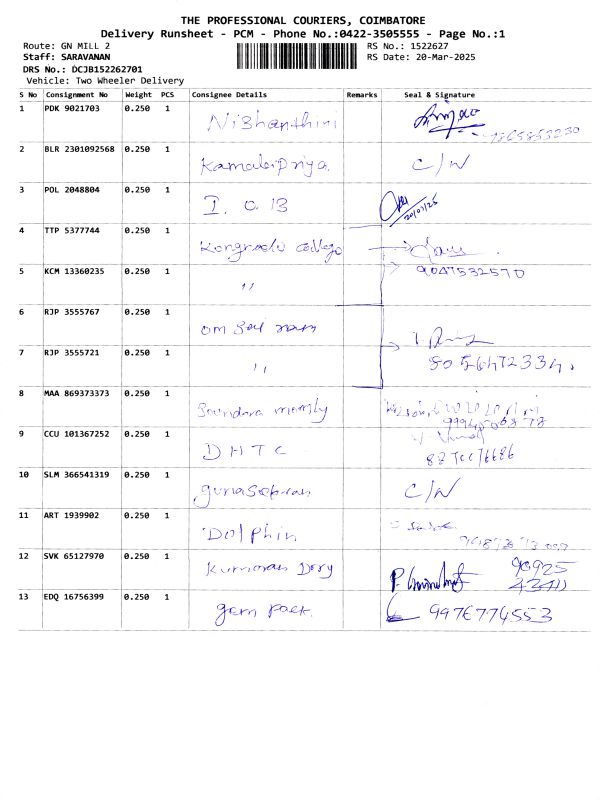 THE PROFESSIONAL COURIERS, COIMBATORE
Delivery Runsheet - PCM - Phone No.:0422-3505555 - Page No.:1
Route: GN MILL 2 RS No.: 1522627
Staff: SARAVANAN RS Date: 20-Mar-2025
DRS No.: DCJB152262701
Vehicle: Two Wheeler Delivery
S No Consignment No Weight PCS Consignee Details Remarks Seal & Signature
1 PDK 9021703 0.250 1 Nishanthini
2 BLR 2301092568 0.250 1 Kamalapriya. C/W
3 POL 2048804 0.250 1 I. O. B 20/03/25
4 TTP 5377744 0.250 1 Kongunadu college
5 KCM 13360235 0.250 1 ,, 9047532570
6 RJP 3555767 0.250 1 om Sai ram
7 RJP 3555721 0.250 1 ,, 8056472334
8 MAA 869373373 0.250 1 Soundara
9 CCU 101367252 0.250 1 D H T C
10 SLM 366541319 0.250 1 gunasekaran C/W
11 ART 1939902 0.250 1 Dolphin
12 SVK 65127970 0.250 1 Kumaran 90925
13 EDQ 16756399 0.250 1 gem pack. 9976774553